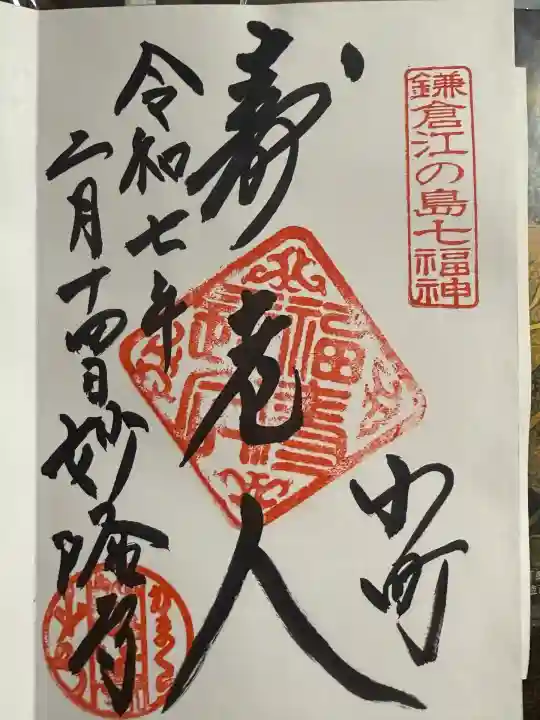 鎌倉江の島七福神
小町
寿老人
令和七年
二月十四日 妙隆寺
かまくら